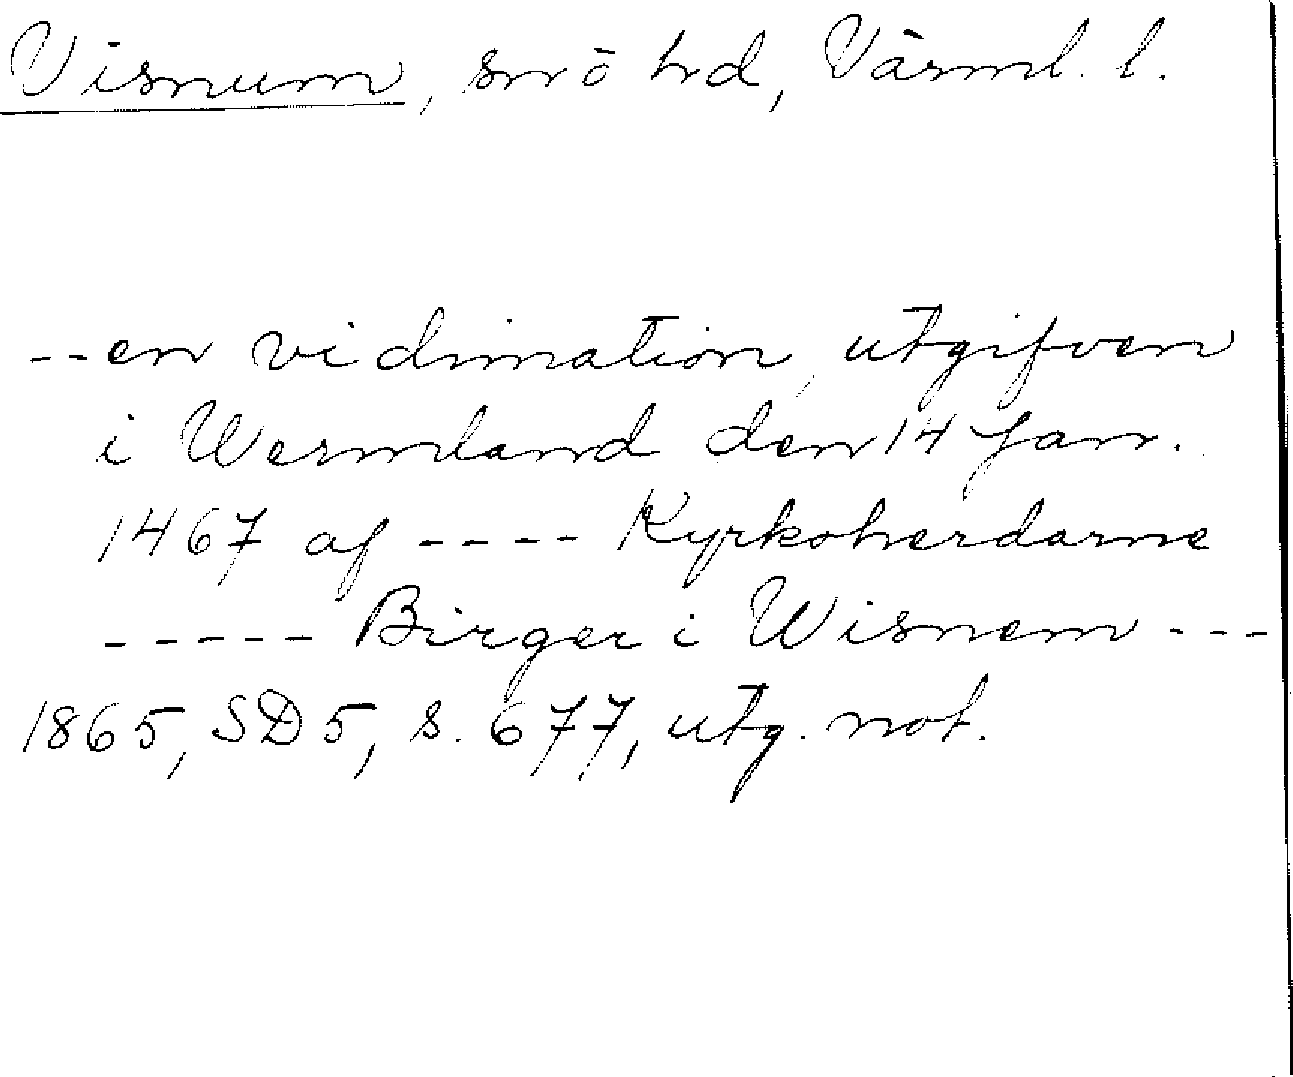 Visnum, snö hd, Värml. l.
--en vidimation, utgifven
i Wermland den 14 Jan.
1467 af ---- Kyrkoherdarne
----- Birger i Wisnem ---
1865, SD 5, s. 677, utg. not.